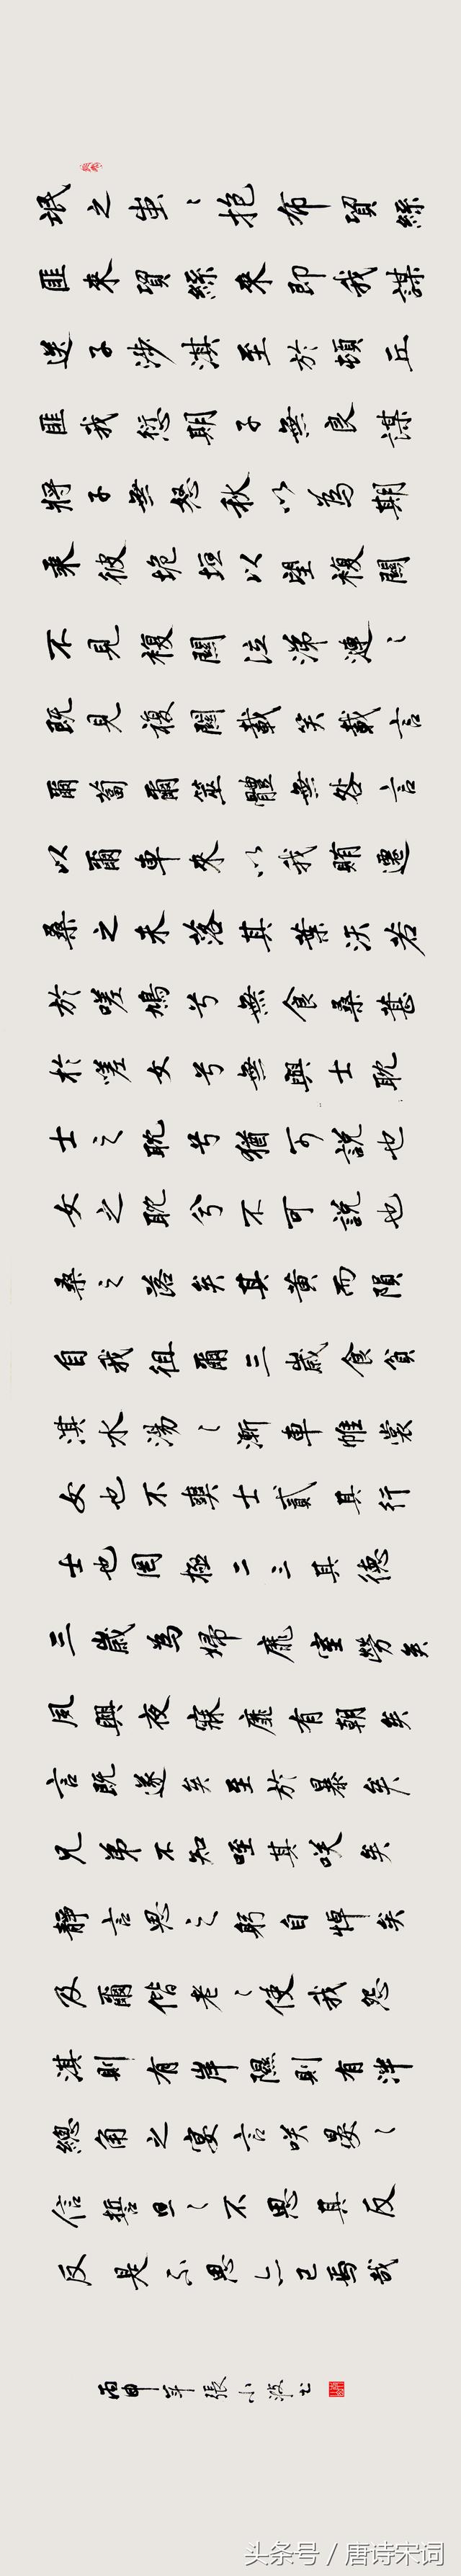 氓之蚩々抱布貿絲
匪來貿絲來即我謀
送子涉淇至於頓丘
匪我愆期子無良謀
將子無怒秋以為期
乘彼垝垣以望複關
不見複關泣涕漣々
既見複關載笑載言
爾蔔爾筮體無咎言
以爾車來以我賄遷
桑之未落其葉沃若
於嗟鳩兮無食桑葚
於嗟女兮無與士耽
士之耽兮猶可說也
女之耽兮不可說也
桑之落矣其黃而隕
自我徂爾三歲食貧
淇水湯々漸車帷裳
女也不爽士貳其行
士也罔極二三其德
三歲為婦靡室勞矣
夙興夜寐靡有朝矣
言既遂矣至於暴矣
兄弟不知咥其咲矣
靜言思之躬自悼矣
及爾偕老々使我怨
淇則有岸隰則有泮
總角之宴言咲晏々
信誓旦々不思其反
反是不思亦已焉哉
丙申年張小波書
头条号 / 唐诗宋词